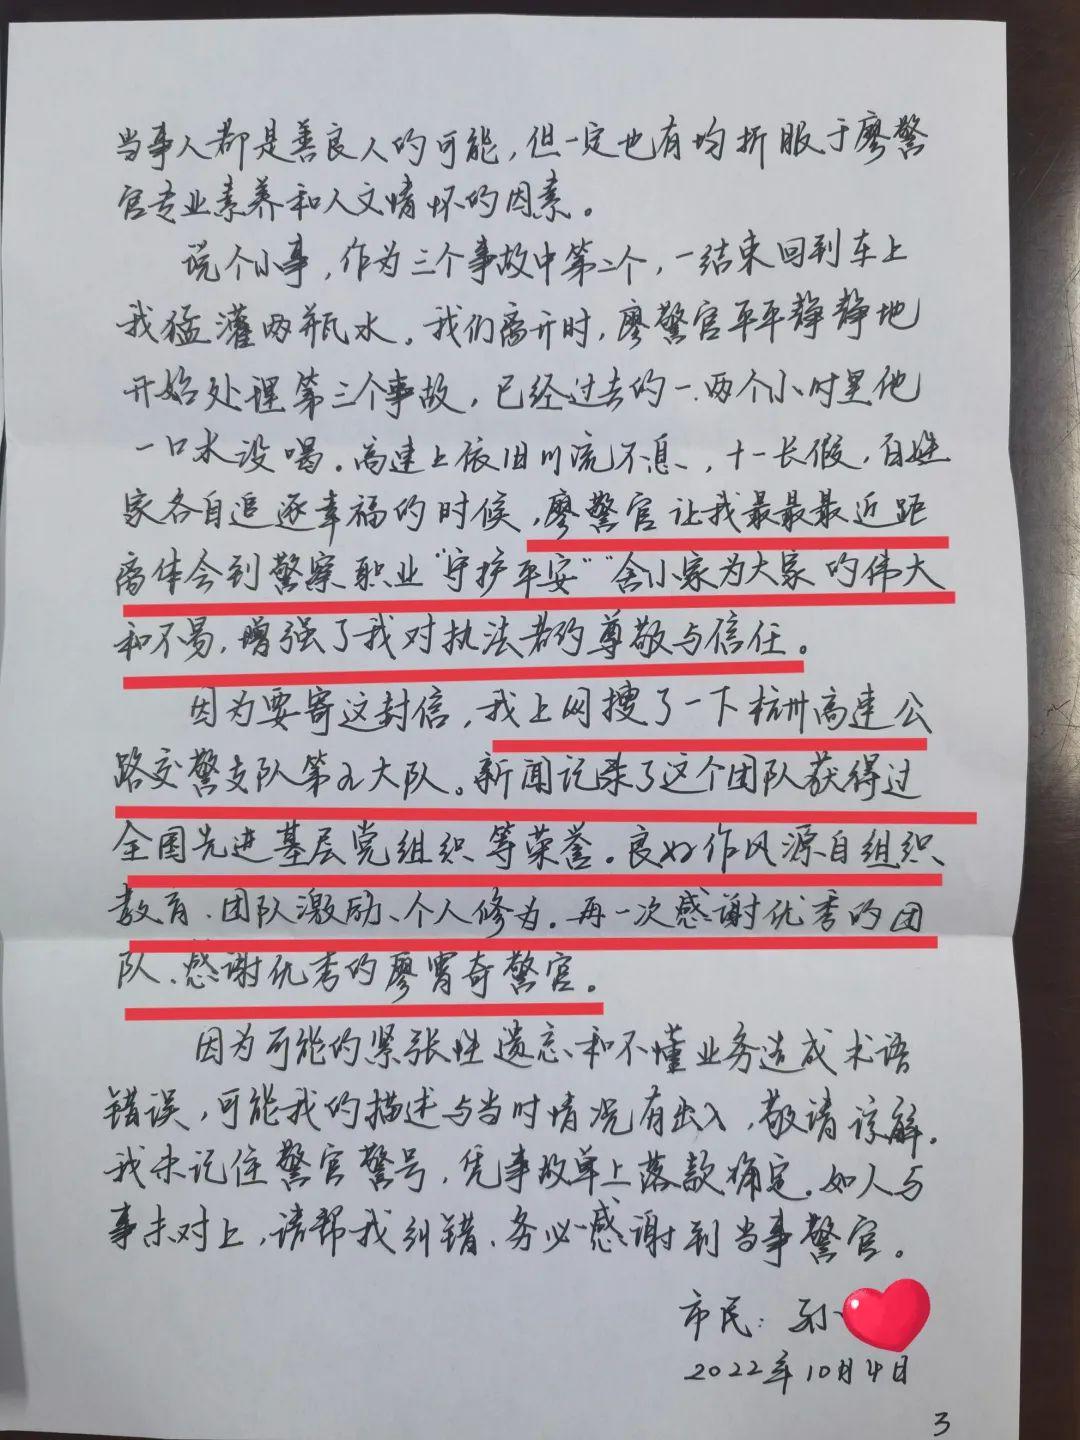 当事人都是善良人的可能，但一定也有均折服于廖警
官专业素养和人文情怀的因素。
说个小事，作为三个事故中第二个，一结束回到车上
我猛灌两瓶水。我们离开时，廖警官平平静静地
开始处理第三个事故，已经过去的一、两个小时里他
一口水没喝。高速上依旧川流不息、，十一长假，百姓
家各自追逐幸福的时候，廖警官让我最最最近距
离体会到警察职业“守护平安”“舍小家为大家的伟大
和不易，增强了我对执法者的尊敬与信任。
因为要寄这封信，我上网搜了一下杭州高速公
路交警支队第九大队。新闻记录了这个团队获得过
全国先进基层党组织等荣誉。良好作风源自组织
教育、团队激励、个人修为。再一次感谢优秀的团
队、感谢优秀的廖胄奇警官。
因为可能的紧张性遗忘、和不懂业务造成术语
错误，可能我的描述与当时情况有出入，敬请谅解。
我未记住警官警号，凭事故单上落款确定。如人与
事未对上，请帮我纠错、务必感谢到当事警官。
市民：孙
2022年10月4日
3